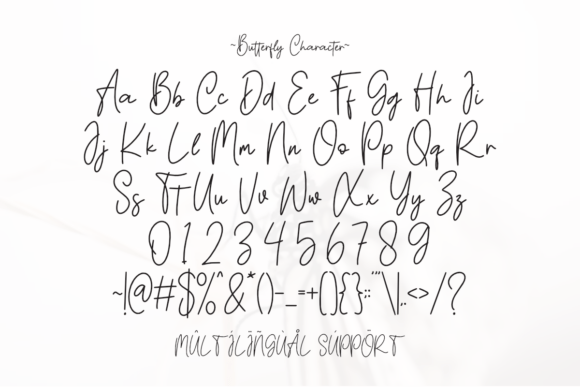 ~Butterfly Character~
Aa Bb Cc Dd Ee Ff Gg Hh Ii
Jj Kk Ll Mm Nn Oo Pp Qq Rr
Ss Tt Uu Vv Ww Xx Yy Zz
0 1 2 3 4 5 6 7 8 9
~!@#$%^&*()-_=+[]{}:;"'\|,.<>/?